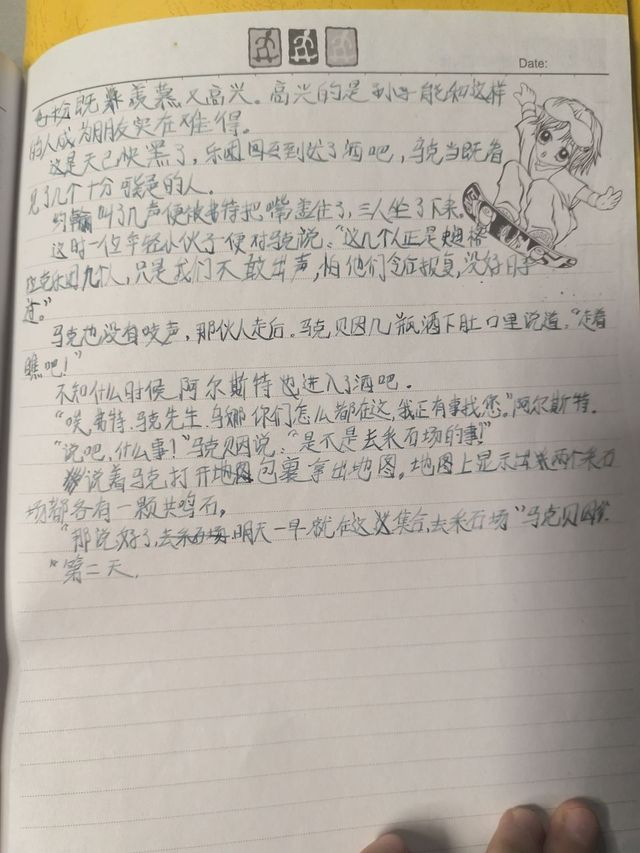 Date:
既羡慕又高兴。高兴的是 能和这样
的人成为朋友实在难得。
这是天已快黑了，乐团 到 了酒吧，马克当既看
见了几个十分 的人。
约翰叫了几声便被弗特把嘴盖住了，三人坐了下来。
这时一位年轻小伙子便对马克说：“这几个人正是 格
拉克乐团 个人，只是我们不敢出声，怕他们 报复，没好日子
过。”
马克也没有吱声，那伙人走后。马克贝因几瓶酒下肚口里说道，“走着
瞧吧！”
不知什么时候，阿尔斯特也进入了酒吧。
“唉，弗特，马克先生，乌娜你们怎么都在这，我正有事找您。”阿尔斯特.
“说吧，什么事！”马克贝因说：“是不是去采石场的事！”
说着马克打开 包裹拿出地图，地图上显示 两个采石
场都各有一颗共鸣石。
“那说好了，去采石场明天一早就在这 集合，去采石场”马克贝因
“第二天，